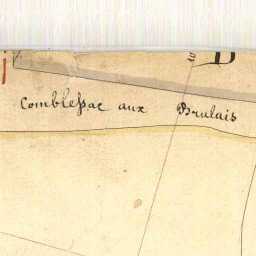 Comblessac aux Brulais